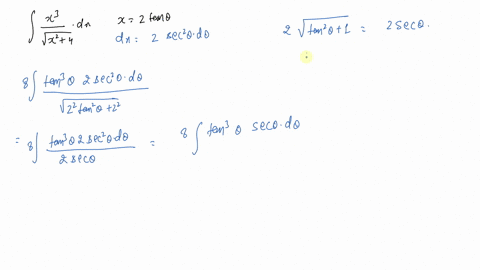 ∫ x³/√(x²+4) · dx    x = 2 tanθ
dx = 2 sec²θ·dθ
2 √(tan²θ+1) = 2 secθ.
8∫ tan³θ 2 sec²θ·dθ / √(2² tan²θ + 2²)
= 8∫ tan³θ 2 sec²θ dθ / 2 secθ = 8 ∫ tan³θ secθ·dθ